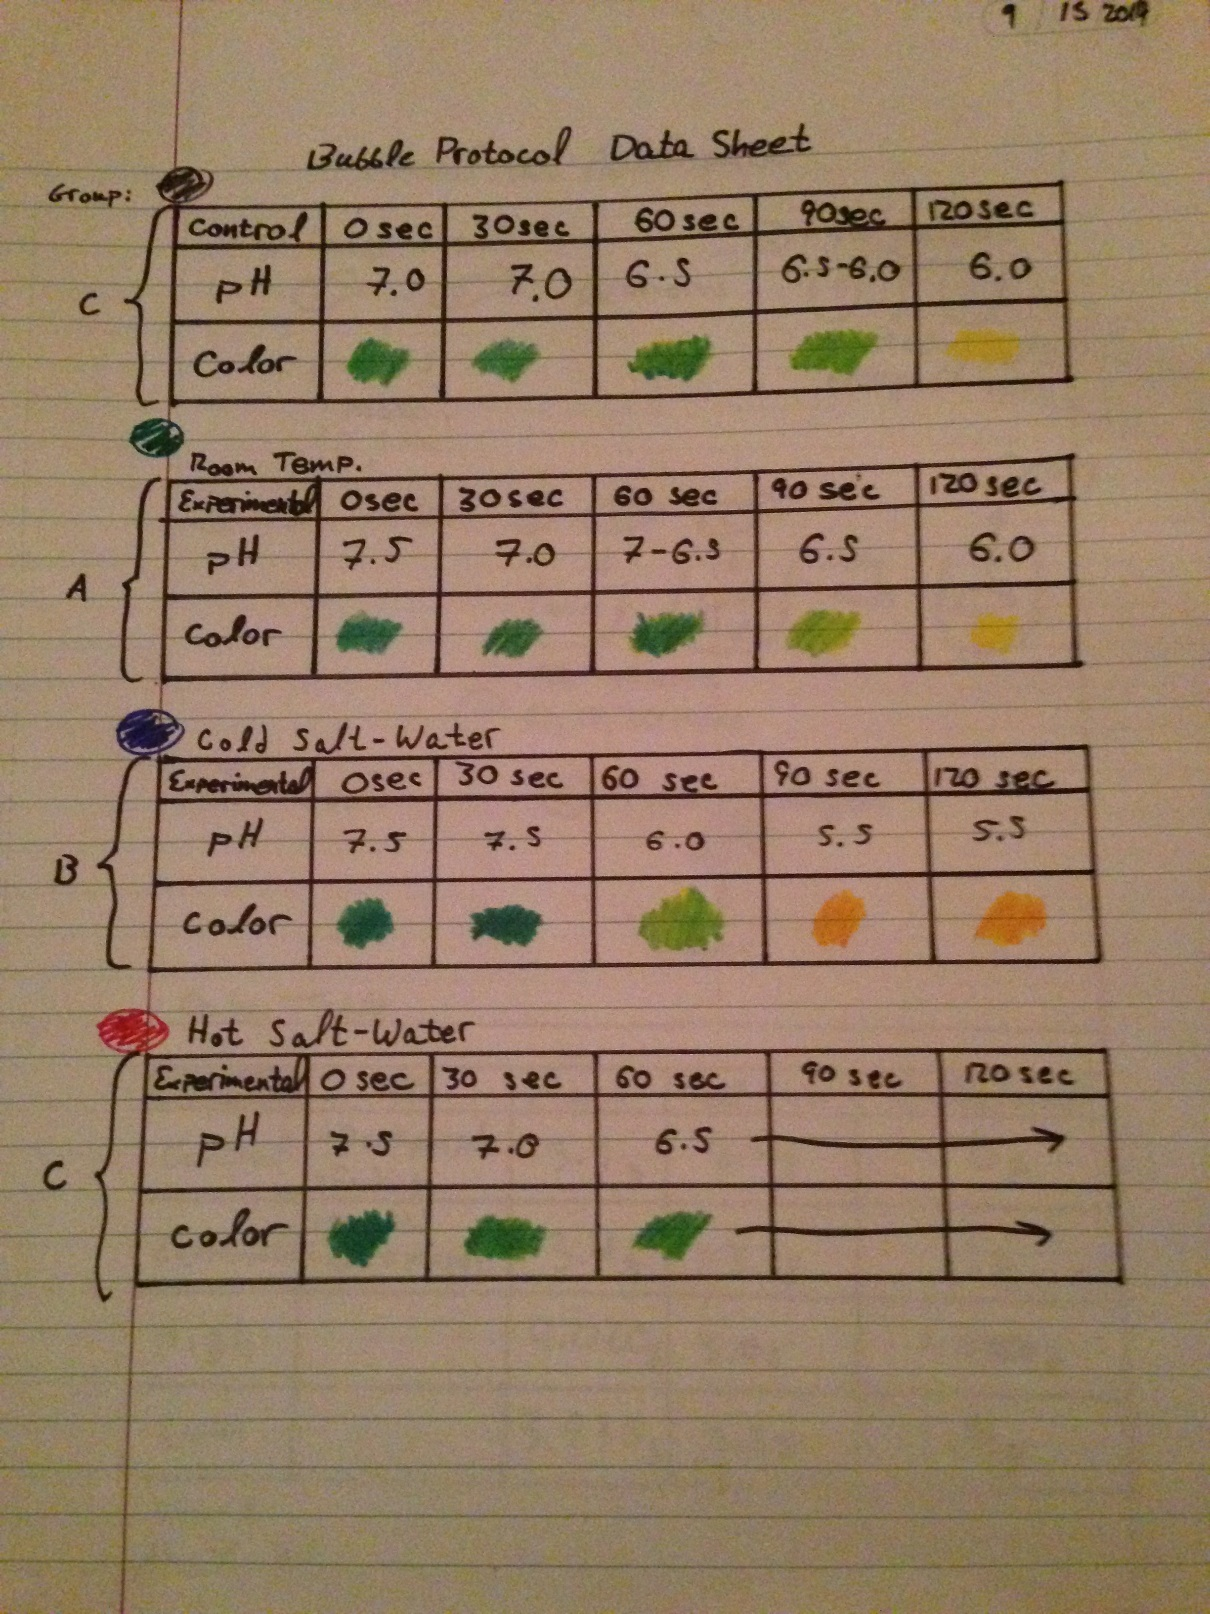 9 / 15 2019
Bubble Protocol Data Sheet
Group:
Control 0 sec 30sec 60 sec 90sec 120sec
C pH 7.0 7.0 6.5 6.5-6.0 6.0
Color
Room Temp.
Experimental 0sec 30sec 60 sec 90 sec 120sec
A pH 7.5 7.0 7-6.5 6.5 6.0
Color
Cold Salt-Water
Experimental 0sec 30 sec 60 sec 90 sec 120 sec
B pH 7.5 7.5 6.0 5.5 5.5
Color
Hot Salt-Water
Experimental 0 sec 30 sec 60 sec 90 sec 120 sec
C pH 7.5 7.0 6.5 →
Color →